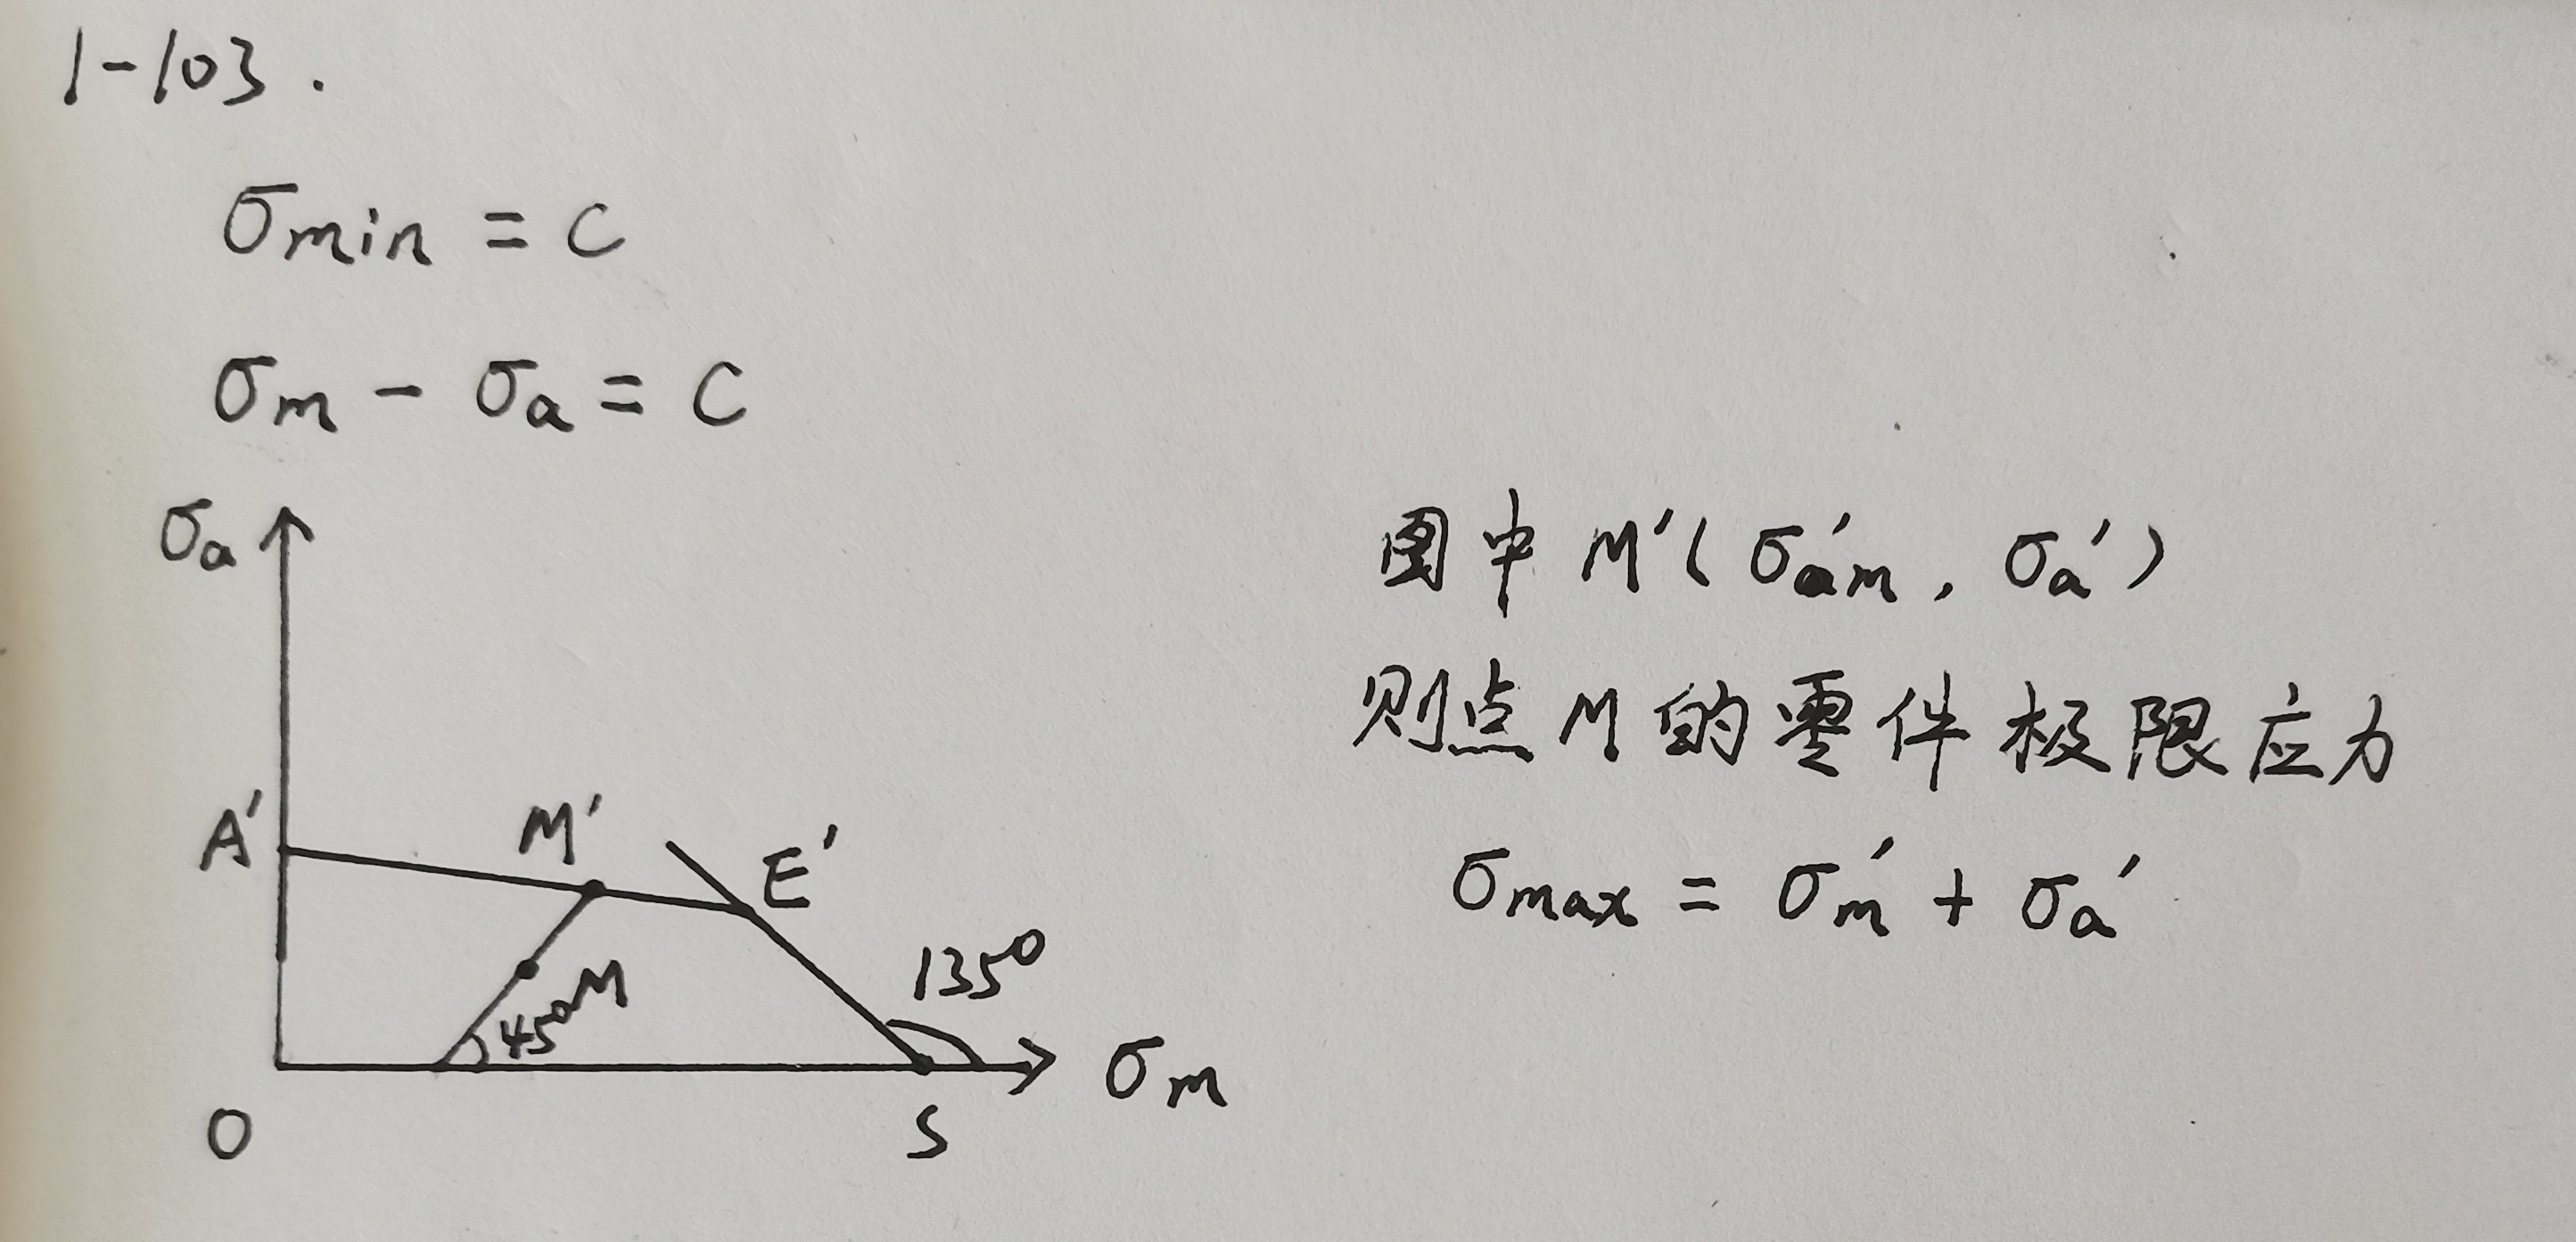 1-103.
σmin = C
σm - σa = C
σa
A'
M'
E'
M
45°
135°
O
S
σm
图中 M'(σ'm, σa')
则点M的零件极限应力
σmax = σm' + σa'